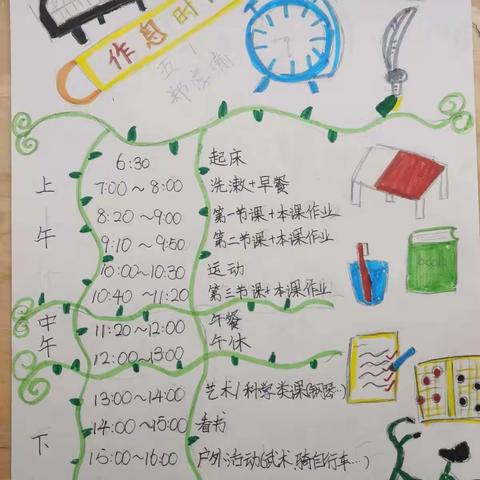 作息时
五1
6:30 起床
7:00~8:00 洗漱+早餐
上午
8:20~9:00 第一节课+本课作业
9:10~9:50 第二节课+本课作业
10:00~10:30 运动
10:40~11:20 第三节课+本课作业
中午
11:20~12:00 午餐
12:00~13:00 午休
13:00~14:00 艺术/科学类课(钢琴…)
下
14:00~15:00 看书
15:00~16:00 户外活动(武术、骑自行车…)
book